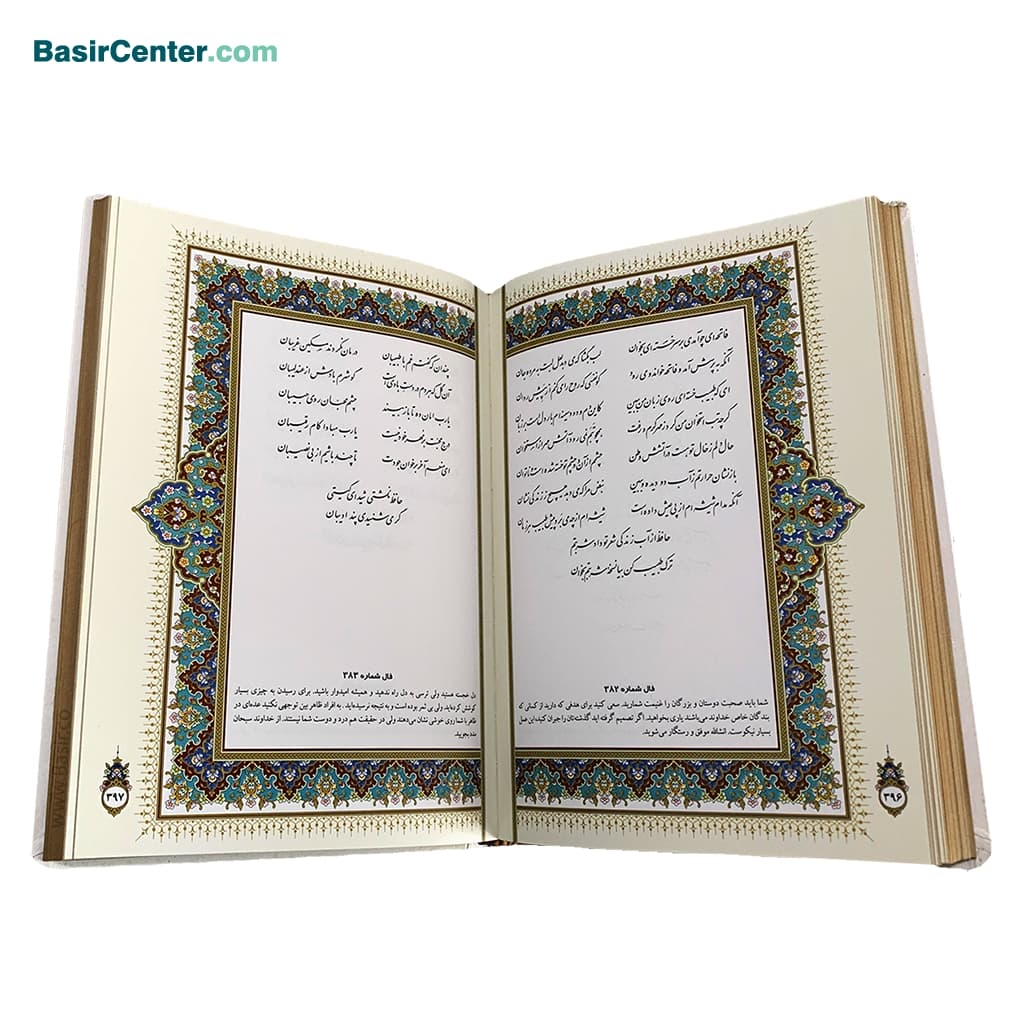 BasirCenter.com
فاتحه‌ای چو آمدی بر سر خسته‌ای بخوان لب بگشا که می‌دهد لعل لبت به مرده جان
آنکه به پرسش آمد و فاتحه خواند و می‌رود گو نفسی که روح را می‌کنم از پیش روان
ای که طبیب خسته‌ای روی زبان من ببین کاین دم و دود سینه‌ام بار دل است بر زبان
گرچه تب استخوان من کرد ز مهر گرم و رفت همچو تبم نمی‌رود آتش مهر از استخوان
حال دلم ز خال تو هست در آتشش وطن چشمم از آن دو چشم تو خسته شده است و ناتوان
بازنشان حرارتم ز آب دو دیده و ببین نبض مرا که می‌دهد هیچ ز زندگی نشان
آنکه مدام شیشه‌ام از پی عیش داده است شیشه‌ام از چه می‌برد پیش طبیب هر زمان
حافظ از آب زندگی شعر تو داد شربتم
ترک طبیب کن بیا نسخه شربتم بخوان
فال شماره ۳۸۲
شما باید صحبت دوستان و بزرگان را غنیمت شمارید. سعی کنید برای هدفی که دارید از کسانی که
بندگان خاص خداوند می‌باشند یاری بخواهید. اگر تصمیم گرفته اید گذشته‌تان را جبران کنید،این صل
بسیار نیکوست. انشالله موفق و رستگار می‌شوید.
۳۹۶
چندان که گفتم غم با طبیبان درمان نکردند مسکین غریبان
آن گل که هر دم در دست بادیست گو شرم بادش از عندلیبان
یارب امان ده تا بازبیند چشم محبان روی حبیبان
درج محبت بر مهر خود نیست یارب مبادا کام رقیبان
ای منعم آخر بر خوان جودت تا چند باشیم از بی نصیبان
حافظ نگشتی شیدای گیتی
گر می شنیدی پند ادیبان
فال شماره ۳۸۳
دل خجسته هستید ولی ترسی به دل راه ندهید و همیشه امیدوار باشید. برای رسیدن به چیزی بسیار
کوشش کرده‌اید ولی بی ثمر بوده است و به نتیجه نرسیده‌اید. به افراد ظاهر بین توجهی نکنید عده‌ای در
ظاهر با شما روی خوشی نشان می‌دهند ولی در حقیقت هم درد و دوست شما نیستند. از خداوند سبحان
مدد بجویید.
۳۹۷
www.basir.co